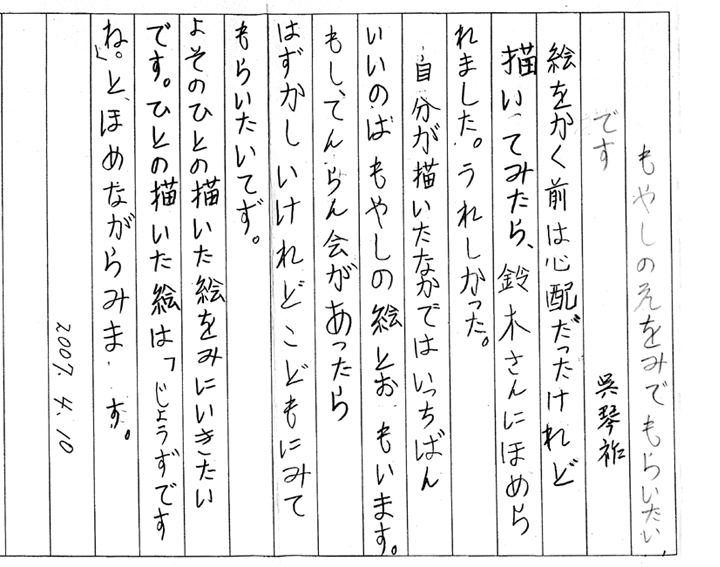 もやしのえをみてもらいたい
です
呉琴祚
絵をかく前は心配だったけれど
描いてみたら、鈴木さんにほめら
れました。うれしかった。
自分が描いたなかではいっちばん
いいのは もやしの絵とおもいます。
もし、てんらん会があったら
はずかしいけれどこどもにみて
もらいたいてず。
よそのひとの描いた絵をみにいきたい
です。ひとの描いた絵は「じょうずです
ね」。と、ほめながらみます。
2007.4.10